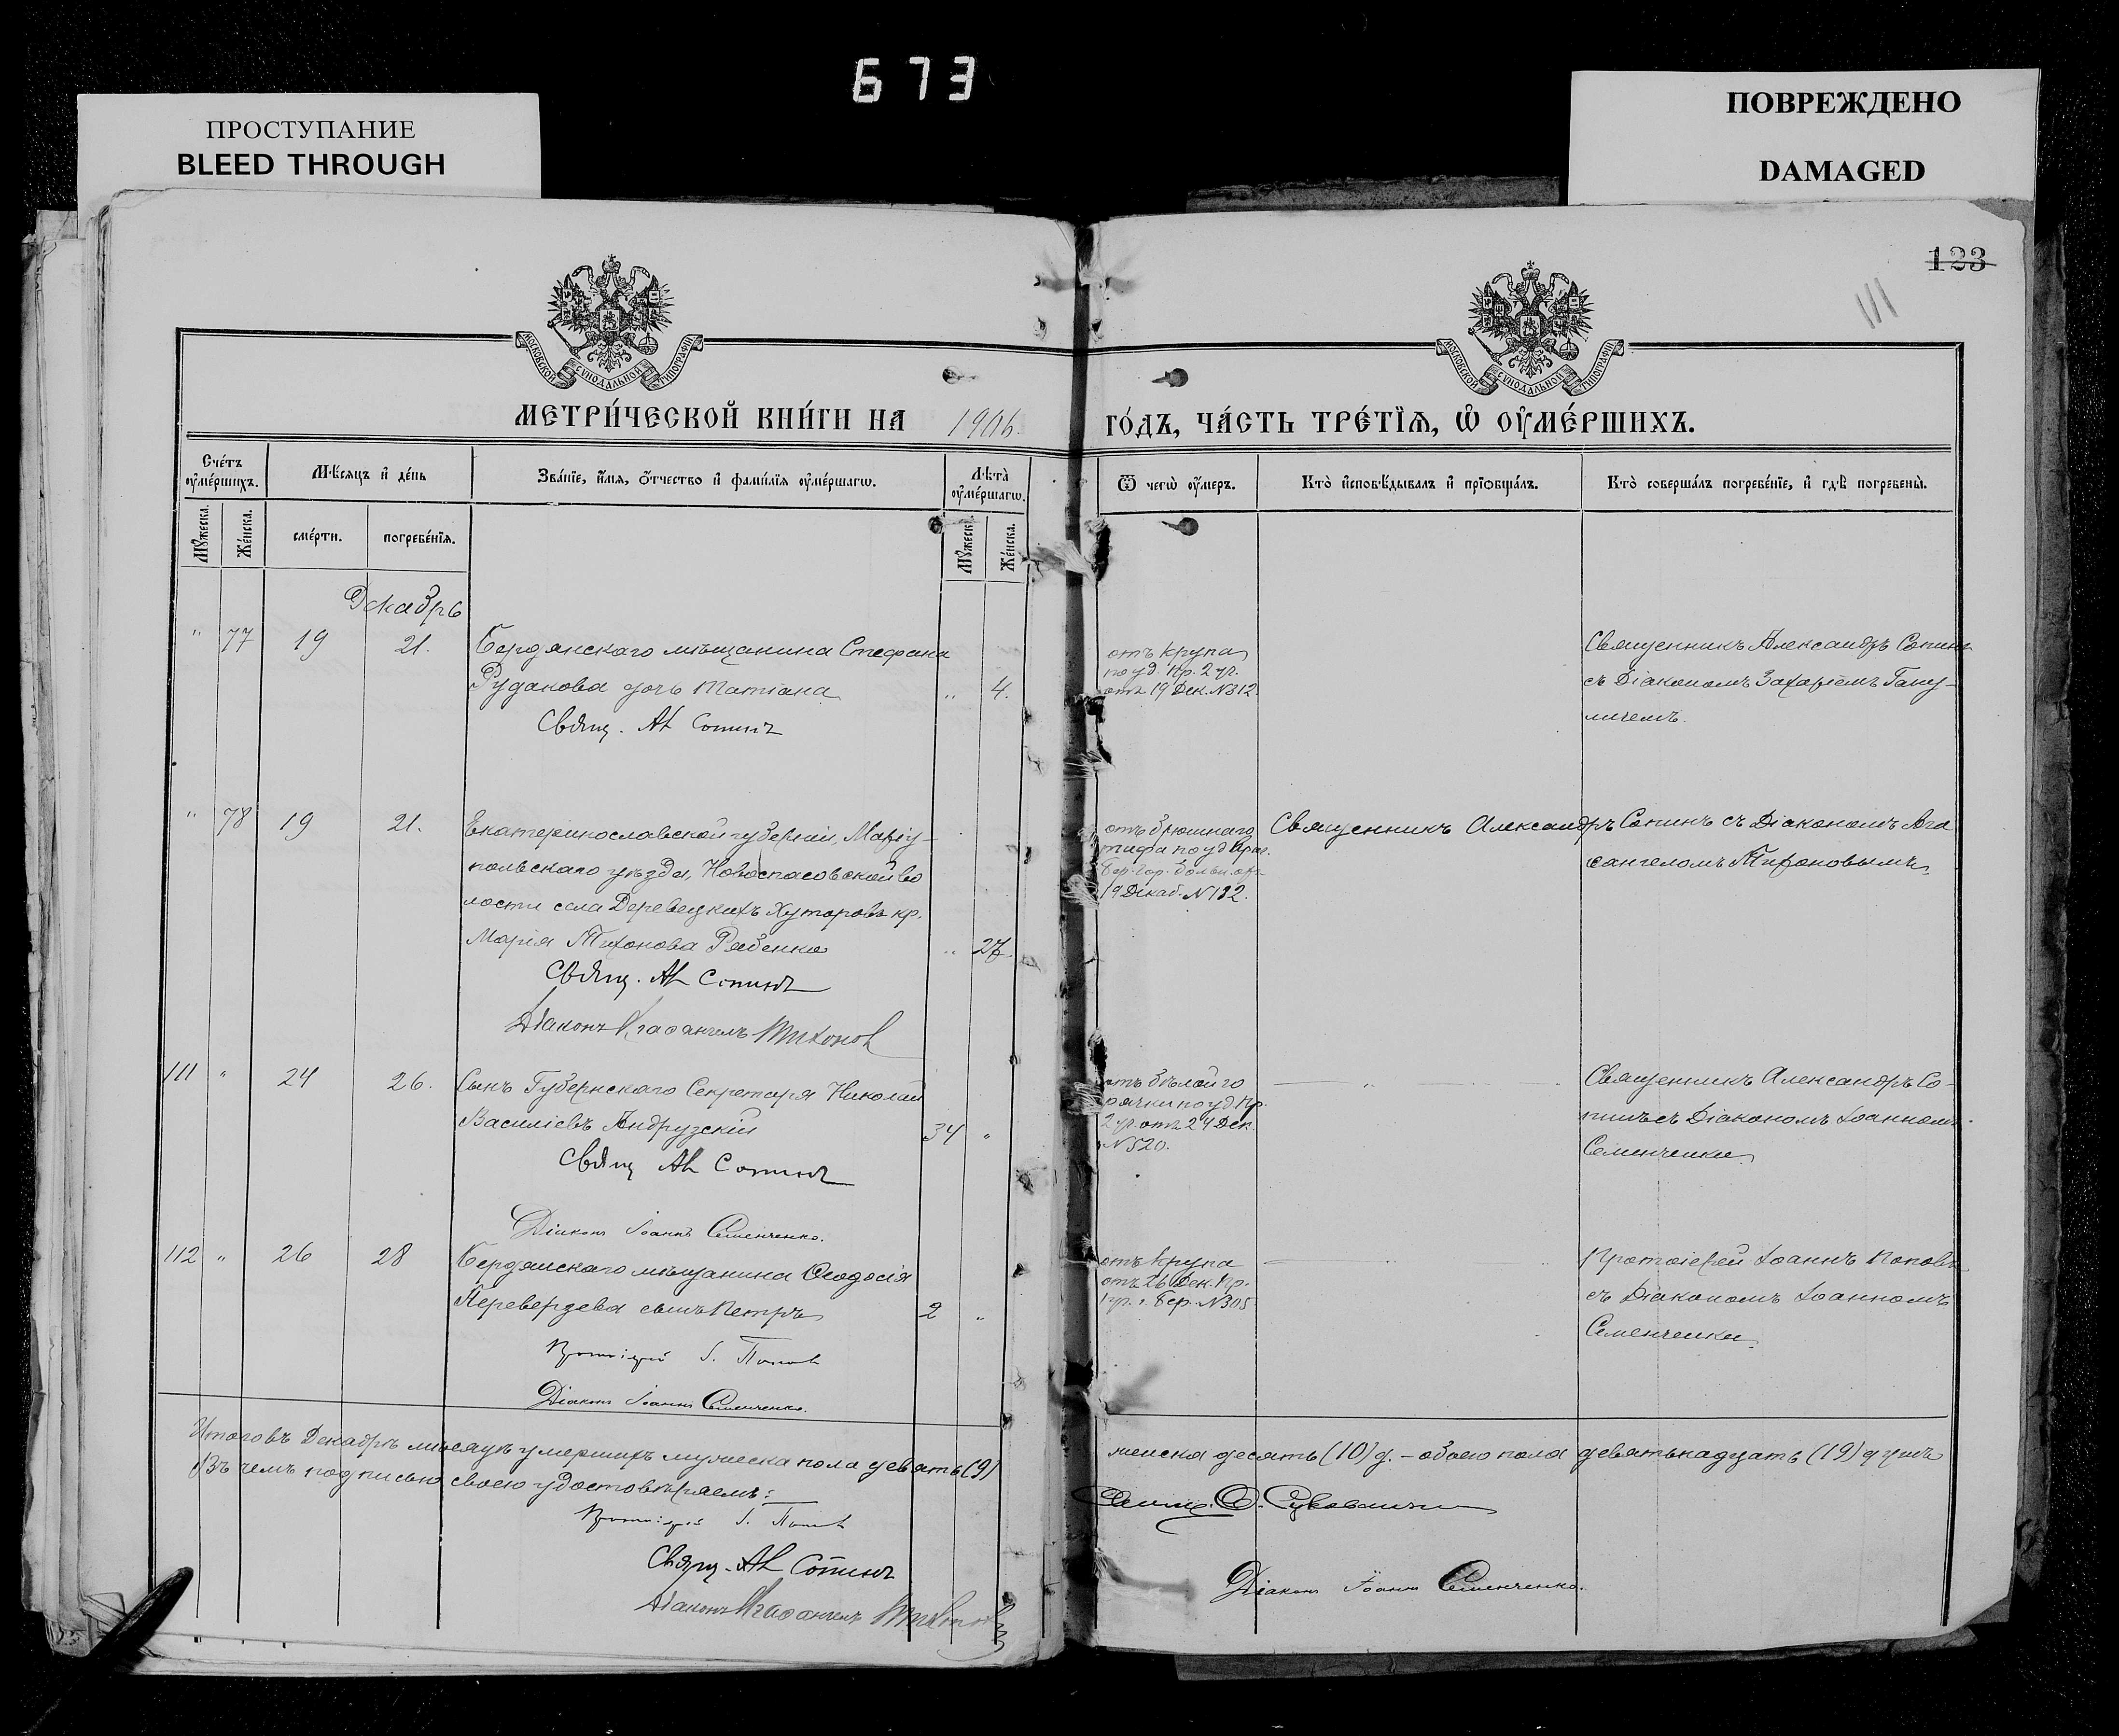 673
ПРОСТУПАНИЕ
BLEED THROUGH
ПОВРЕЖДЕНО
DAMAGED
123
111
МОСКОВСКОЙ СѴНОДАЛЬНОЙ ТИПОГРАФІИ
МОСКОВСКОЙ СѴНОДАЛЬНОЙ ТИПОГРАФІИ
МЕТРИ́ЧЕСКОЙ КНИ́ГИ НА 1906.
ГО́ДЪ, ЧА́СТЬ ТРЕ́ТІѦ, Ѽ ОУ҆МЕ́РШИХЪ.
Сче́тъ оу҆ме́ршихъ.
Мѣ́сяцъ и҆ де́нь
Зва́нїе, и҆́мя, ѻ҆́тчество и҆ фами́лїя оу҆ме́ршагѡ.
Лѣ́та оу҆ме́ршагѡ.
Ѿ чегѡ̀ оу҆́меръ.
Кто̀ и҆сповѣ́дывалъ и҆ прїѻбща́лъ.
Кто̀ соверша́лъ погребе́нїе, и҆ гдѣ̀ погребены̀.
Мꙋ́жеска.
Же́нска.
сме́рти.
погребе́нїя.
Мꙋ́жеска.
Же́нска.
Декабрь
" 77 19 21. Бердянскаго мѣщанина Стефана
Рудакова дочь Татіана " 4.
Свящ. Ал Сопинъ
отъ крупа
по уд. Пр. 2 уч.
отъ 19 Дек. N312.
Священникъ Александръ Сопинъ
съ Діакономъ Захаріемъ
" 78 19 21. Екатеринославской губерніи, Маріу-
польскаго уѣзда, Новоспасовской во
лости села Деревецкихъ Хуторовъ кр.
Марія Тихонова Рябенко " 27.
Свящ. Ал Сопинъ
Діаконъ Агаѳангелъ Тихонов
отъ брюшнаго
тифа по уд Врач.
Бер. гор. больн. отъ
19 Декаб. N132.
Священникъ Александръ Сопинъ съ Діакономъ Ага
ѳангеломъ Тихоновымъ
111 " 24 26. Сынъ Губернскаго Секретаря Николай
Василіевъ Андрузскій 34 "
Свящ Ал Сопинъ
Діаконъ Іоаннъ Семенченко.
отъ бѣлой го
рячки по уд. Пр.
2 уч. отъ 24 Дек
N520.
Священникъ Александръ Со-
пинъ съ Діакономъ Іоанномъ
Семенченко
112 " 26 28 Бердянскаго мѣщанина Ѳеодосія
Переверзева сынъ Петръ 2 "
Протоіерей І. Попов
Діаконъ Іоаннъ Семенченко.
отъ крупа
отъ 26 Дек. Пр.
1 уч. г. Бер. N305
Протоіерей Іоаннъ Поповъ
съ Діакономъ Іоанномъ
Семенченко
Итого въ Декабрѣ мѣсяцѣ умершихъ мужеска пола девять (9)
женска десять (10) д. - обоего пола девятьнадцать (19) душъ
Въ чемъ подписью своею удостовѣряемъ:
Протоіерей І. Попов
Свящ. Ал Сопинъ
Діаконъ Агаѳангелъ Тихонов
Діаконъ Іоаннъ Семенченко.